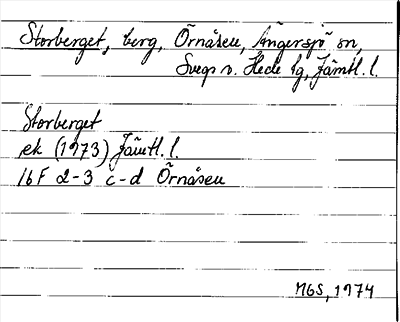 Storberget, berg, Örnåsen, Ängersjö sn,
Svegs n. Hede tg, Jämtl. l.
Storberget
ek (1973) Jämtl. l.
16 F 2-3 c-d Örnåsen
MGS, 1974